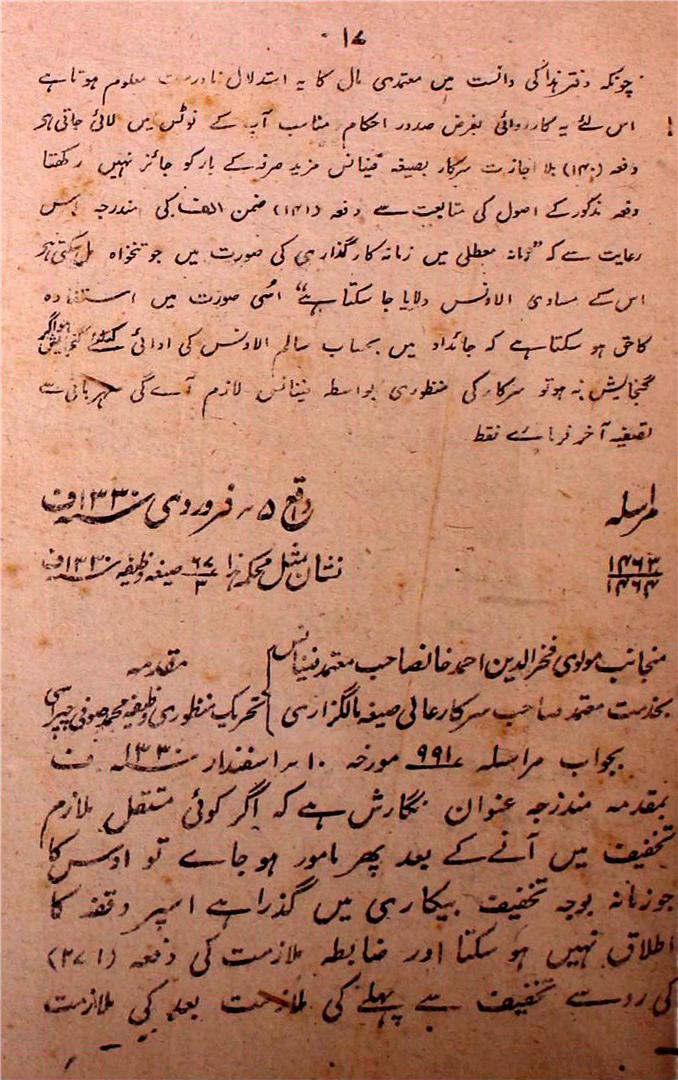 ۱۷
چونکہ دفتر ہذا کی دانست میں معتمدی مال کا یہ استدلال نادرست معلوم ہوتا ہے
اس لئے یہ کارروائی بغرض صدور احکام مناسب آپ کے نوٹس میں لائی جاتی ہے
دفعہ (۱۴۰) بلا اجازت سرکار بصیغہ فینانس مزید صرفہ کے بار کو جائز نہیں رکھتا
دفعہ مذکور کے اصول کی متابعت سے دفعہ (۱۴۱) ضمن الف کی مندرجہ اس
رعایت سے کہ "زمانہ معطلی میں زمانہ کارگذاری کی صورت میں جو تنخواہ مل سکتی ہے
اس کے مساوی الاونس دلایا جا سکتا ہے" اسی صورت میں استفادہ
کا حق ہو سکتا ہے کہ جائداد میں بحساب سالم الاونس کی ادائی کیلئے گنجایش ہو اگر
گنجایش نہ ہو تو سرکار کی منظوری بواسطہ فینانس لازم آے گی مہربانی سے
تصفیہ آخر فرماے فقط
مراسلہ واقع ۵؍ فروردی سنہ ۱۳۳۰ ف
۱۴۶۳
۱۴۶۴ نشان مثل محکمہ ہذا ۶۷/۳ صیغہ وظیفہ سنہ ۱۳۳۰ ف
منجانب مولوی فخر الدین احمد خانصاحب معتمد فینانس مقدمہ
بخدمت معتمد صاحب سرکار عالی صیغہ مالگزاری تحریک منظوری وظیفہ محمد صوفی چپراسی
بجواب مراسلہ ۹۹۱ مورخہ ۱۰؍ اسفندار سنہ ۱۳۳۰ ف
بمقدمہ مندرجہ عنوان نگارش ہے کہ اگر کوئی مستقل ملازم
تخفیف میں آنے کے بعد پھر مامور ہو جاے تو اوس کا
جو زمانہ بوجہ تخفیف بیکاری میں گذرا ہے اسپر وقفہ کا
اطلاق نہیں ہو سکتا اور ضابطہ ملازمت کی دفعہ (۳۷۱)
کی رو سے تخفیف سے پہلے کی ملازمت بعد کی ملازمت